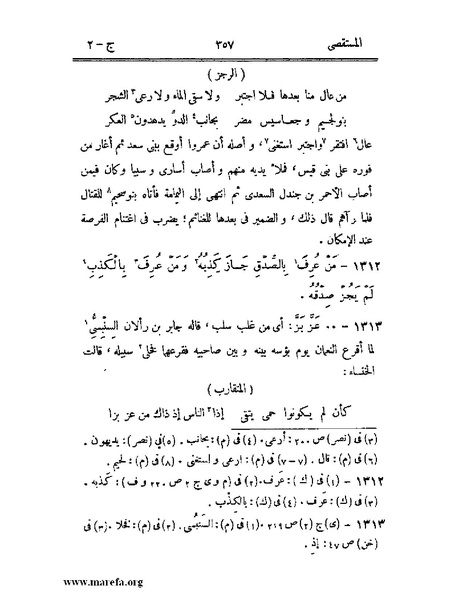 المستقصى ٣٥٧ ج - ٢
(الرجز)
من عال منا بعدها فلا اجتبر ولا سقى الماء ولا رعى ٣ الشجر
بنو لجيم وجعاسيس مضر بجانب ٤ الدوّ يدهدون ٥ العكر
عال ٦ افتقر ٧ واجتبر استغنى ٧، وأصله أن عمروا أوقع ببنى سعد ثم أغار من
فوره على بنى قيس، فملأ يديه منهم وأصاب أسارى وسبيا وكان فيمن
أصاب الأحمر بن جندل السعدى ثم انتهى إلى اليمامة فأتاه بنو سحيم ٨ للقتال
فلما رآهم قال ذلك، والضمير فى بعدها للغنائم؛ يضرب فى اغتنام الفرصة
عند الإمكان.
١٣١٢ - مَنْ عُرِفَ ١ بِالصِّدْقِ جَازَ كَذِبُهُ ٢ وَمَنْ عُرِفَ ٣ بِالْكَذِبِ ٤
لَمْ يَجُزْ صِدْقُهُ.
١٣١٣ - ٠٠ عَزَّ بَزَّ: أى من غلب سلب، قاله جابر بن رألان السِنْبِسِىُّ ١
لما أقرع النعمان يوم بؤسه بينه وبين صاحبيه فقرعها فخلى ٢ سبيله، قالت
الخنساء:
(المتقارب)
كأن لم يكونوا حمى يتقى إذا ٣ الناس إذ ذاك من عز بزا
(٣) فى (نصر) ص ٢٠٠: أرعى. (٤) فى (م): بجانب. (٥) فى (نصر): يديهون.
(٦) فى (م): قال. (٧ - ٧) فى (م): ارعى واستغنى. (٨) فى (م): لجيم.
١٣١٢ - (١) فى (ك): عَرَف. (٢) فى (م و ى ج ٢ ص ٢٢٠ و ف): كذبه.
(٣) فى (ك): عَرَف. (٤) فى (ك): بالكِذْب.
١٣١٣ - (ى) ج (٢) ص ٢١٩. (١) فى (م): السَنْبُسى. (٢) فى (م): نخلا. (٣) فى
(خن) ص ٤٧: إذِ.
www.marefa.org